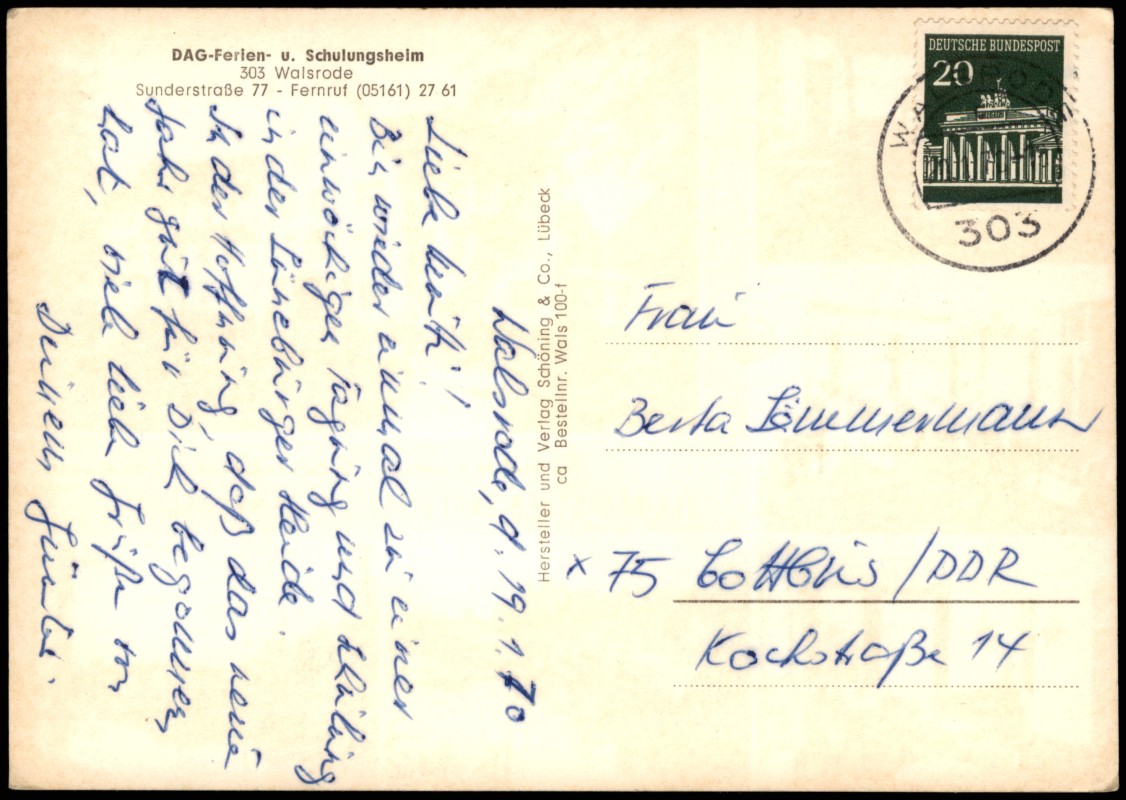 DAG-Ferien- u. Schulungsheim
303 Walsrode
Sunderstraße 77 - Fernruf (05161) 27 61
DEUTSCHE BUNDESPOST
20
WALSRODE
303
Walsrode, d. 19.1.70
Bin wieder einmal zu einer
einwöchigen Tagung und Schulung
in der Lüneburger Heide.
In der Hoffnung, daß das neue
Jahr gut für Dich begonnen
hat, viele liebe Grüße von
Deinem
Hersteller und Verlag Schöning & Co., Lübeck
ca Bestellnr. Wals 100-f
Frau
Berta
x 75 Cottbus / DDR
Kochstraße 14